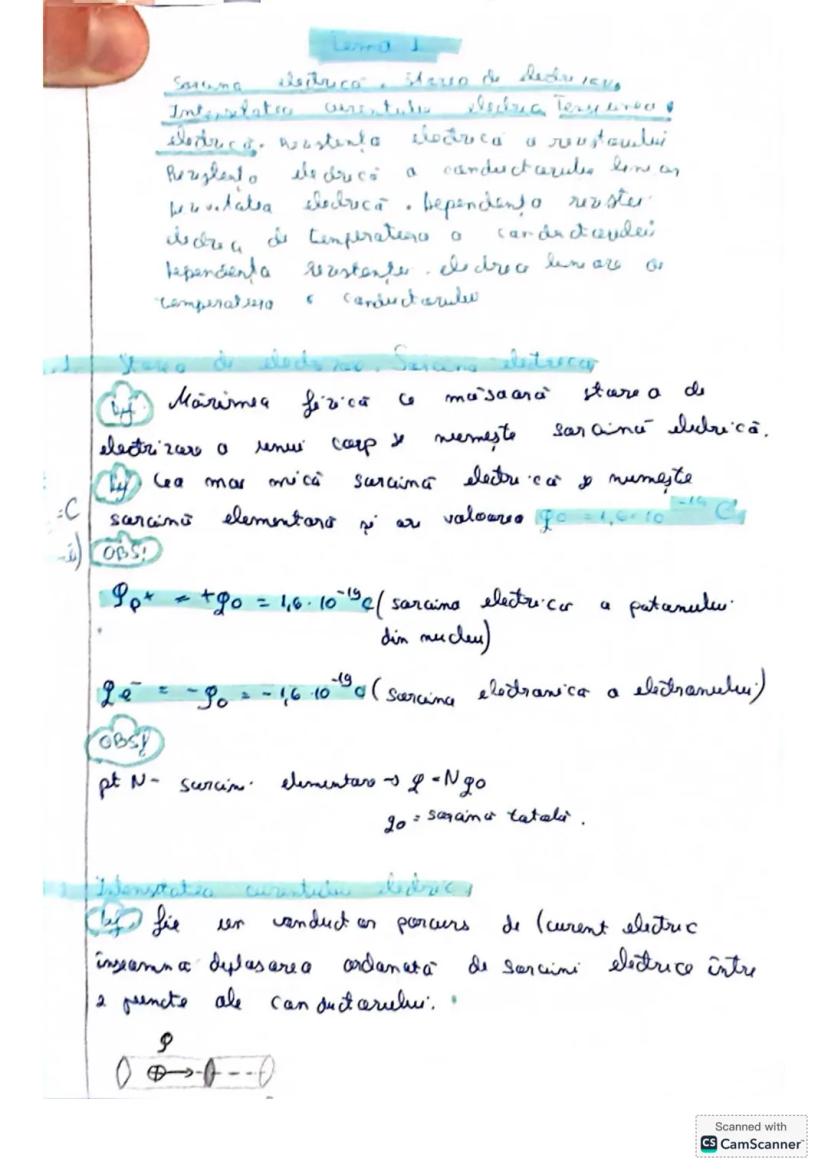 Tema 1
Sarcina electrică. Starea de electrizare
Intensitatea curentului electric Tensiunea
electrică. Rezistența electrică a rezistorului
Rezistența electrică a conductorului liniar
electrică. Dependența
de temperatura a conductorului
Dependența rezistenței electrice liniare
temperatura a conductorului
1. Starea de electrizare. Sarcina electrica
Def Mărimea fizică ce măsoară starea de
electrizare a unui corp se numește sarcină electrică.
Def Cea mai mică sarcină electrică se numește
=C
sarcină elementară și are valoarea q0 = 1,6 · 10^-19 C
OBS!
qp+ = +q0 = 1,6 · 10^-19 C (sarcina electrica a protonului
din nucleu)
qe- = -q0 = -1,6 · 10^-19 C (sarcina electronica a electronului)
OBS!
pt N- sarcini elementare → q = Nq0
q0 = sarcina totală.
Intensitatea curentului electric
Def fie un conductor parcurs de (curent electric
înseamnă deplasarea ordonată de sarcini electrice între
2 puncte ale conductorului.
q
Scanned with
CS CamScanner